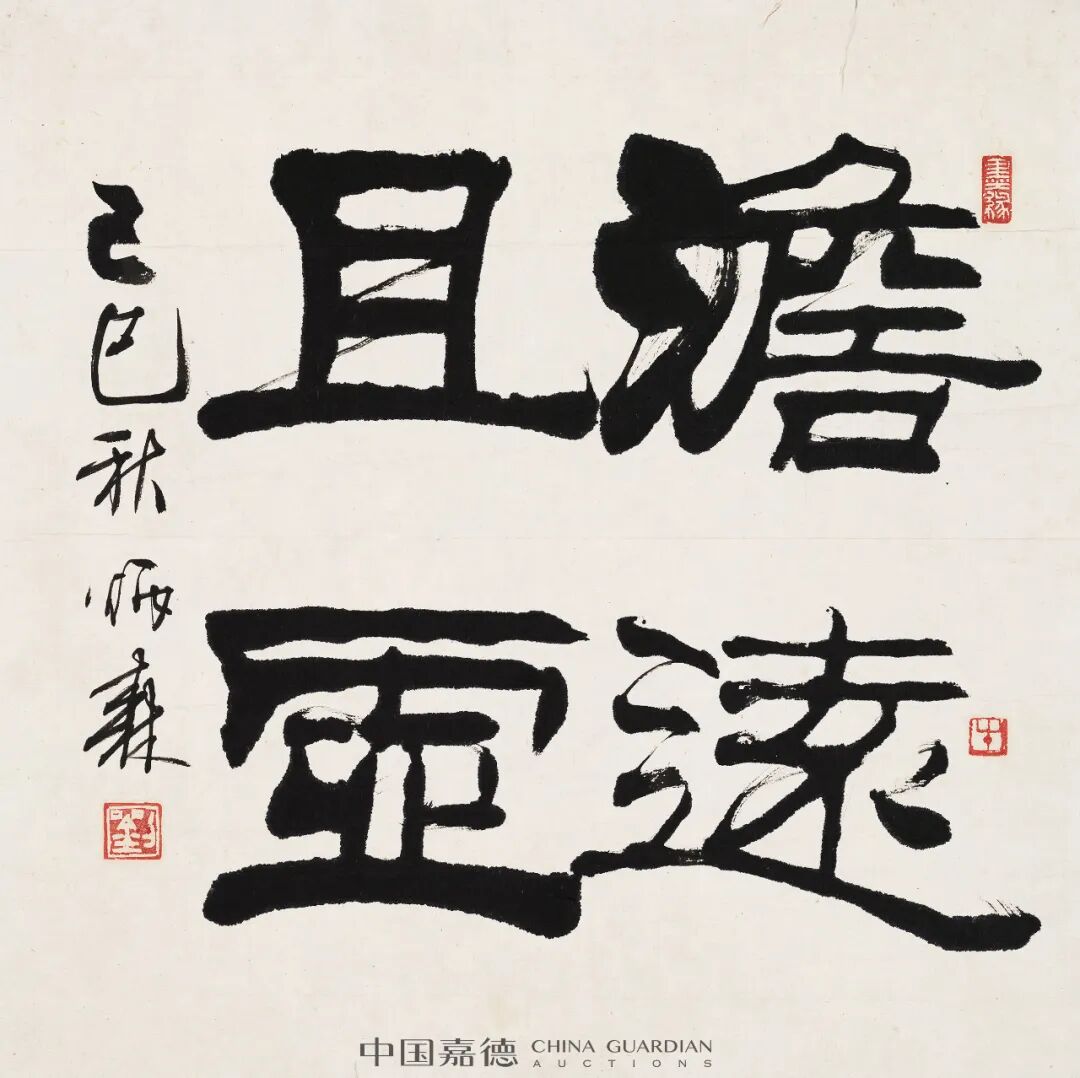 澹遠
且
己巳秋 炳森
中国嘉德 CHINA GUARDIAN
AUCTIONS